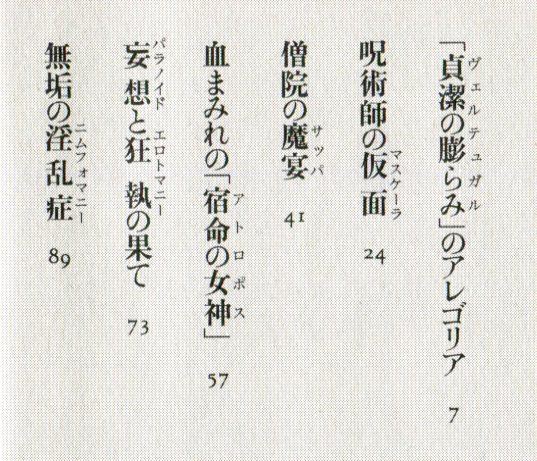 「貞潔の膨らみ」のアレゴリア 7
ヴェルテュガル
呪術師の仮面 24
マスケーラ
僧院の魔宴 41
サッバ
血まみれの「宿命の女神」 57
アトロポス
妄想と狂執の果て 73
パラノイド エロトマニー
無垢の淫乱症 89
ニムフォマニー